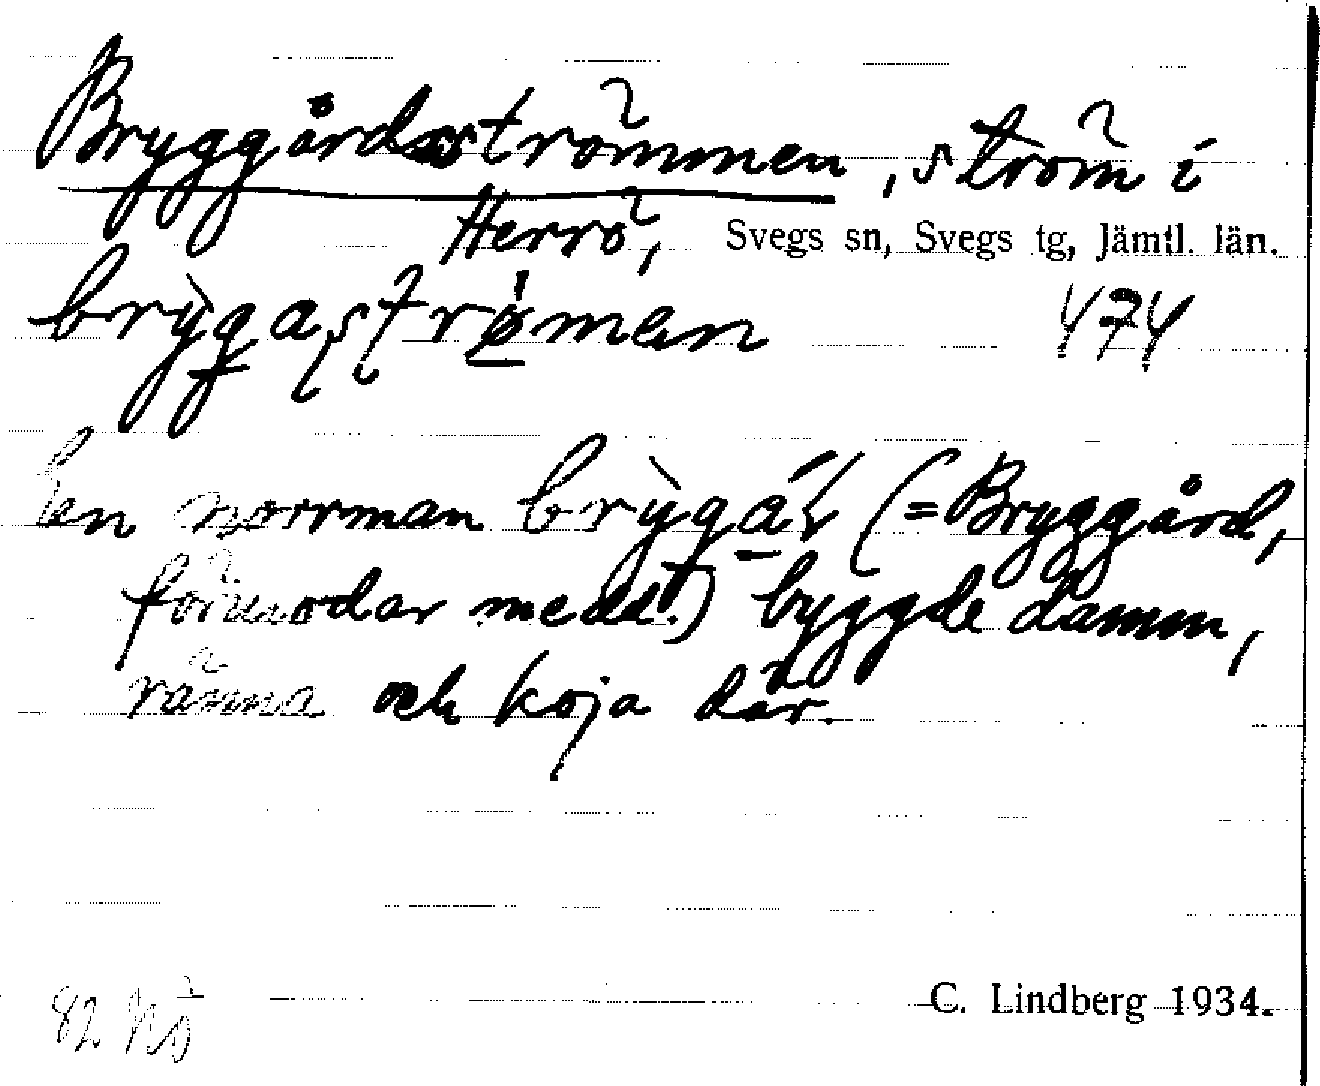 Bryggårdsströmmen, ström i
Herrö, Svegs sn, Svegs tg, Jämtl. län.
474
En norrman (=Bryggård,
förmodar medd.) byggde damm,
ränna och koja där.
82 NÖ
C. Lindberg 1934.